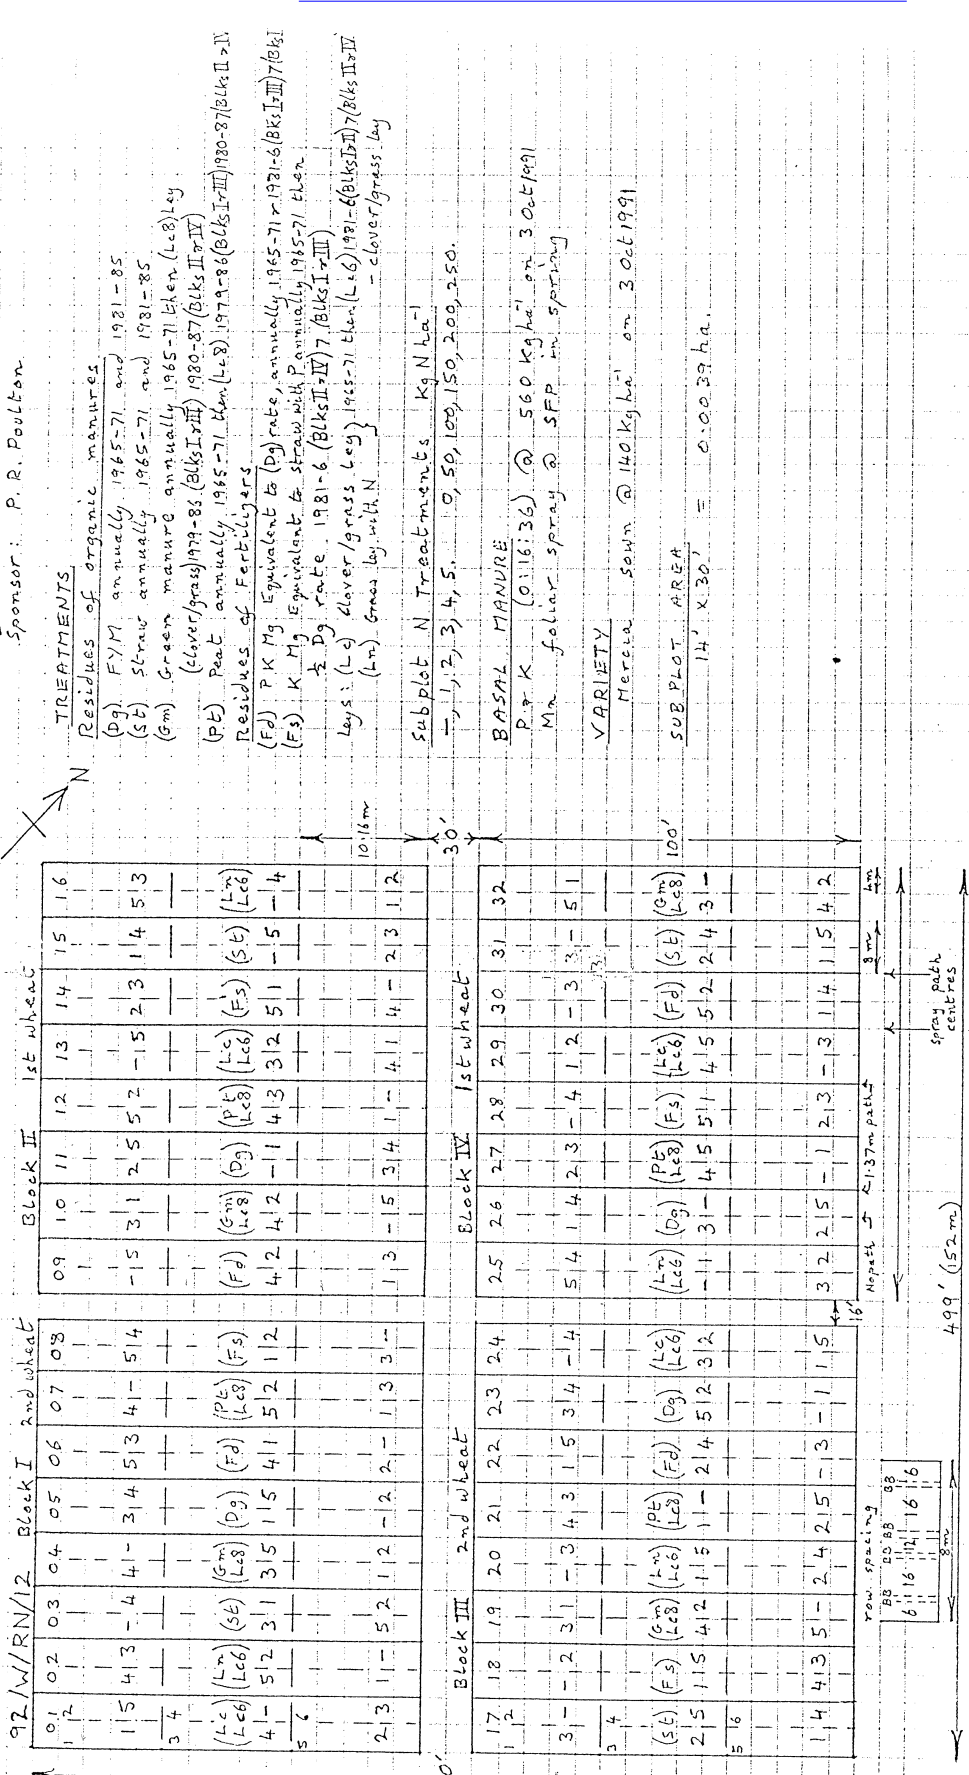 92/W/RN/12 Block I 2nd wheat Block II 1st wheat
01 02 03 04 05 06 07 08 09 10 11 12 13 14 15 16
1 2
1 5 4 3 - 4 4 - 3 4 5 3 4 - 5 4 - 5 3 1 2 5 5 2 - 5 2 3 1 4 5 3
3 4
(Lc Lc6) (Ln Lc6) (St) (Gm Lc8) (Dg) (Fd) (Pt Lc8) (Fs) (Fd) (Gm Lc8) (Dg) (Pt Lc8) (Lc Lc6) (Fs) (St) (Ln Lc6)
4 - 5 2 3 1 3 5 1 5 4 1 5 2 1 2 4 2 4 2 - 1 4 3 3 2 5 1 - 5 - 4
5 6
2 3 1 - 5 2 1 2 - 2 2 - 1 3 3 - 1 3 - 5 3 4 1 - 4 1 4 - 2 3 1 2
N
10.16m
30'
Block III 2nd wheat Block IV 1st wheat
17 18 19 20 21 22 23 24 25 26 27 28 29 30 31 32
1 2
3 - - 2 3 1 - 3 4 3 1 5 3 4 - 4 5 4 1 4 2 3 - 4 1 2 - 3 3 - 5 1
3 4
(St) (Fs) (Gm Lc8) (Ln Lc6) (Pt Lc8) (Fd) (Dg) (Lc Lc6) (Ln Lc6) (Dg) (Pt Lc8) (Fs) (Lc Lc6) (Fd) (St) (Gm Lc8)
2 5 1 5 4 2 1 5 1 - 2 4 5 2 3 2 - 1 3 - 4 5 5 1 4 5 5 2 2 4 3 -
5 6
1 4 4 3 5 - 2 4 2 5 - 3 - 1 1 5 3 2 2 5 - 1 2 3 - 3 1 4 1 5 4 2
100'
16'
No path 1.37m path
8m 4m
spray path
centres
row spacing
BB BB BB BB
6 16 12 16 6
8m
499' (152m)
Sponsor: P. R. Poulton
TREATMENTS
Residues of organic manures
(Dg) FYM annually 1965-71 and 1981-85
(St) Straw annually 1965-71 and 1981-85
(Gm) Green manure annually 1965-71 then (Lc8) Ley
(clover/grass) 1979-86 (Blks I & III) 1980-87 (Blks II & IV)
(Pt) Peat annually 1965-71 then (Lc8) 1979-86 (Blks I & III) 1980-87 (Blks II & IV
Residues of Fertilizers
(Fd) P K Mg Equivalent to (Dg) rate, annually 1965-71 & 1981-6 (Blks I & III) 7 (Blks I
(Fs) K Mg Equivalent to straw with P annually 1965-71 then
½ Dg rate 1981-6 (Blks II & IV) 7 (Blks I & III)
Leys: (Lc) Clover/grass Ley } 1965-71 then (Lc6) 1981-6 (Blks I & II) 7 (Blks II & IV
(Ln) Grass ley with N - clover/grass ley
Subplot N Treatments Kg N ha⁻¹
-, 1, 2, 3, 4, 5. 0, 50, 100, 150, 200, 250.
BASAL MANURE
P & K (0:16:36) @ 560 kg ha⁻¹ on 3 Oct 1991
Mn foliar spray @ SFP in spring
VARIETY
Mercia sown @ 140 kg ha⁻¹ on 3 Oct 1991
SUBPLOT AREA
14' x 30' = 0.0039 ha.